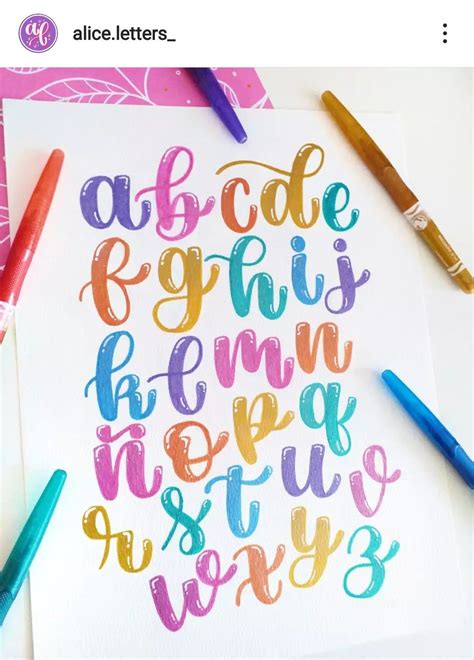 alice.letters_
a b c d e
f g h i j
k l m n
ñ o p q
r s t u v
w x y z